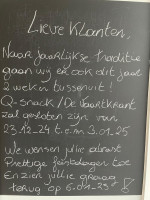 Lieve Klanten,
Naar jaarlijkse traditie
gaan wij er ook dit jaar
2 weken tussenuit!
Q-snack / De Vaartkrant
zal gesloten zijn van
23.12.24 t.e.m 3.01.25
We wensen jullie alvast
Prettige feestdagen toe
En zien jullie graag
terug op 6-01-25